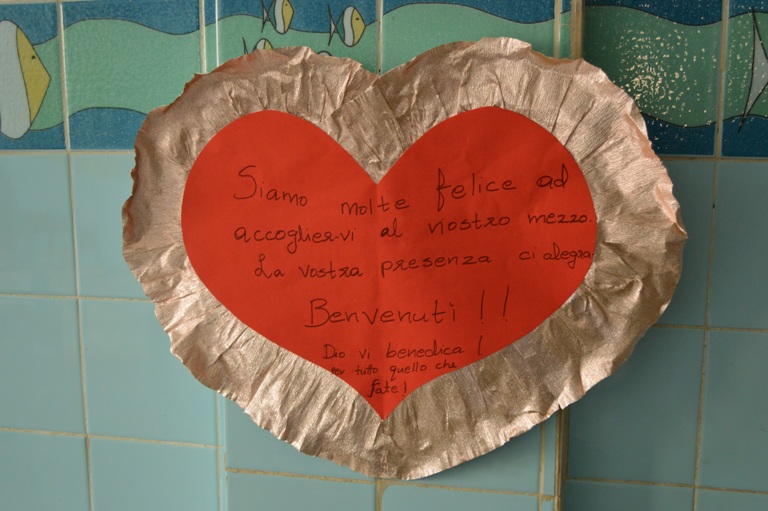 Siamo molte felice ad
accoglier-vi al nostro mezzo.
La vostra presenza ci alegra.
Benvenuti !!
Dio vi benedica !
Per tutto quello che
fate!